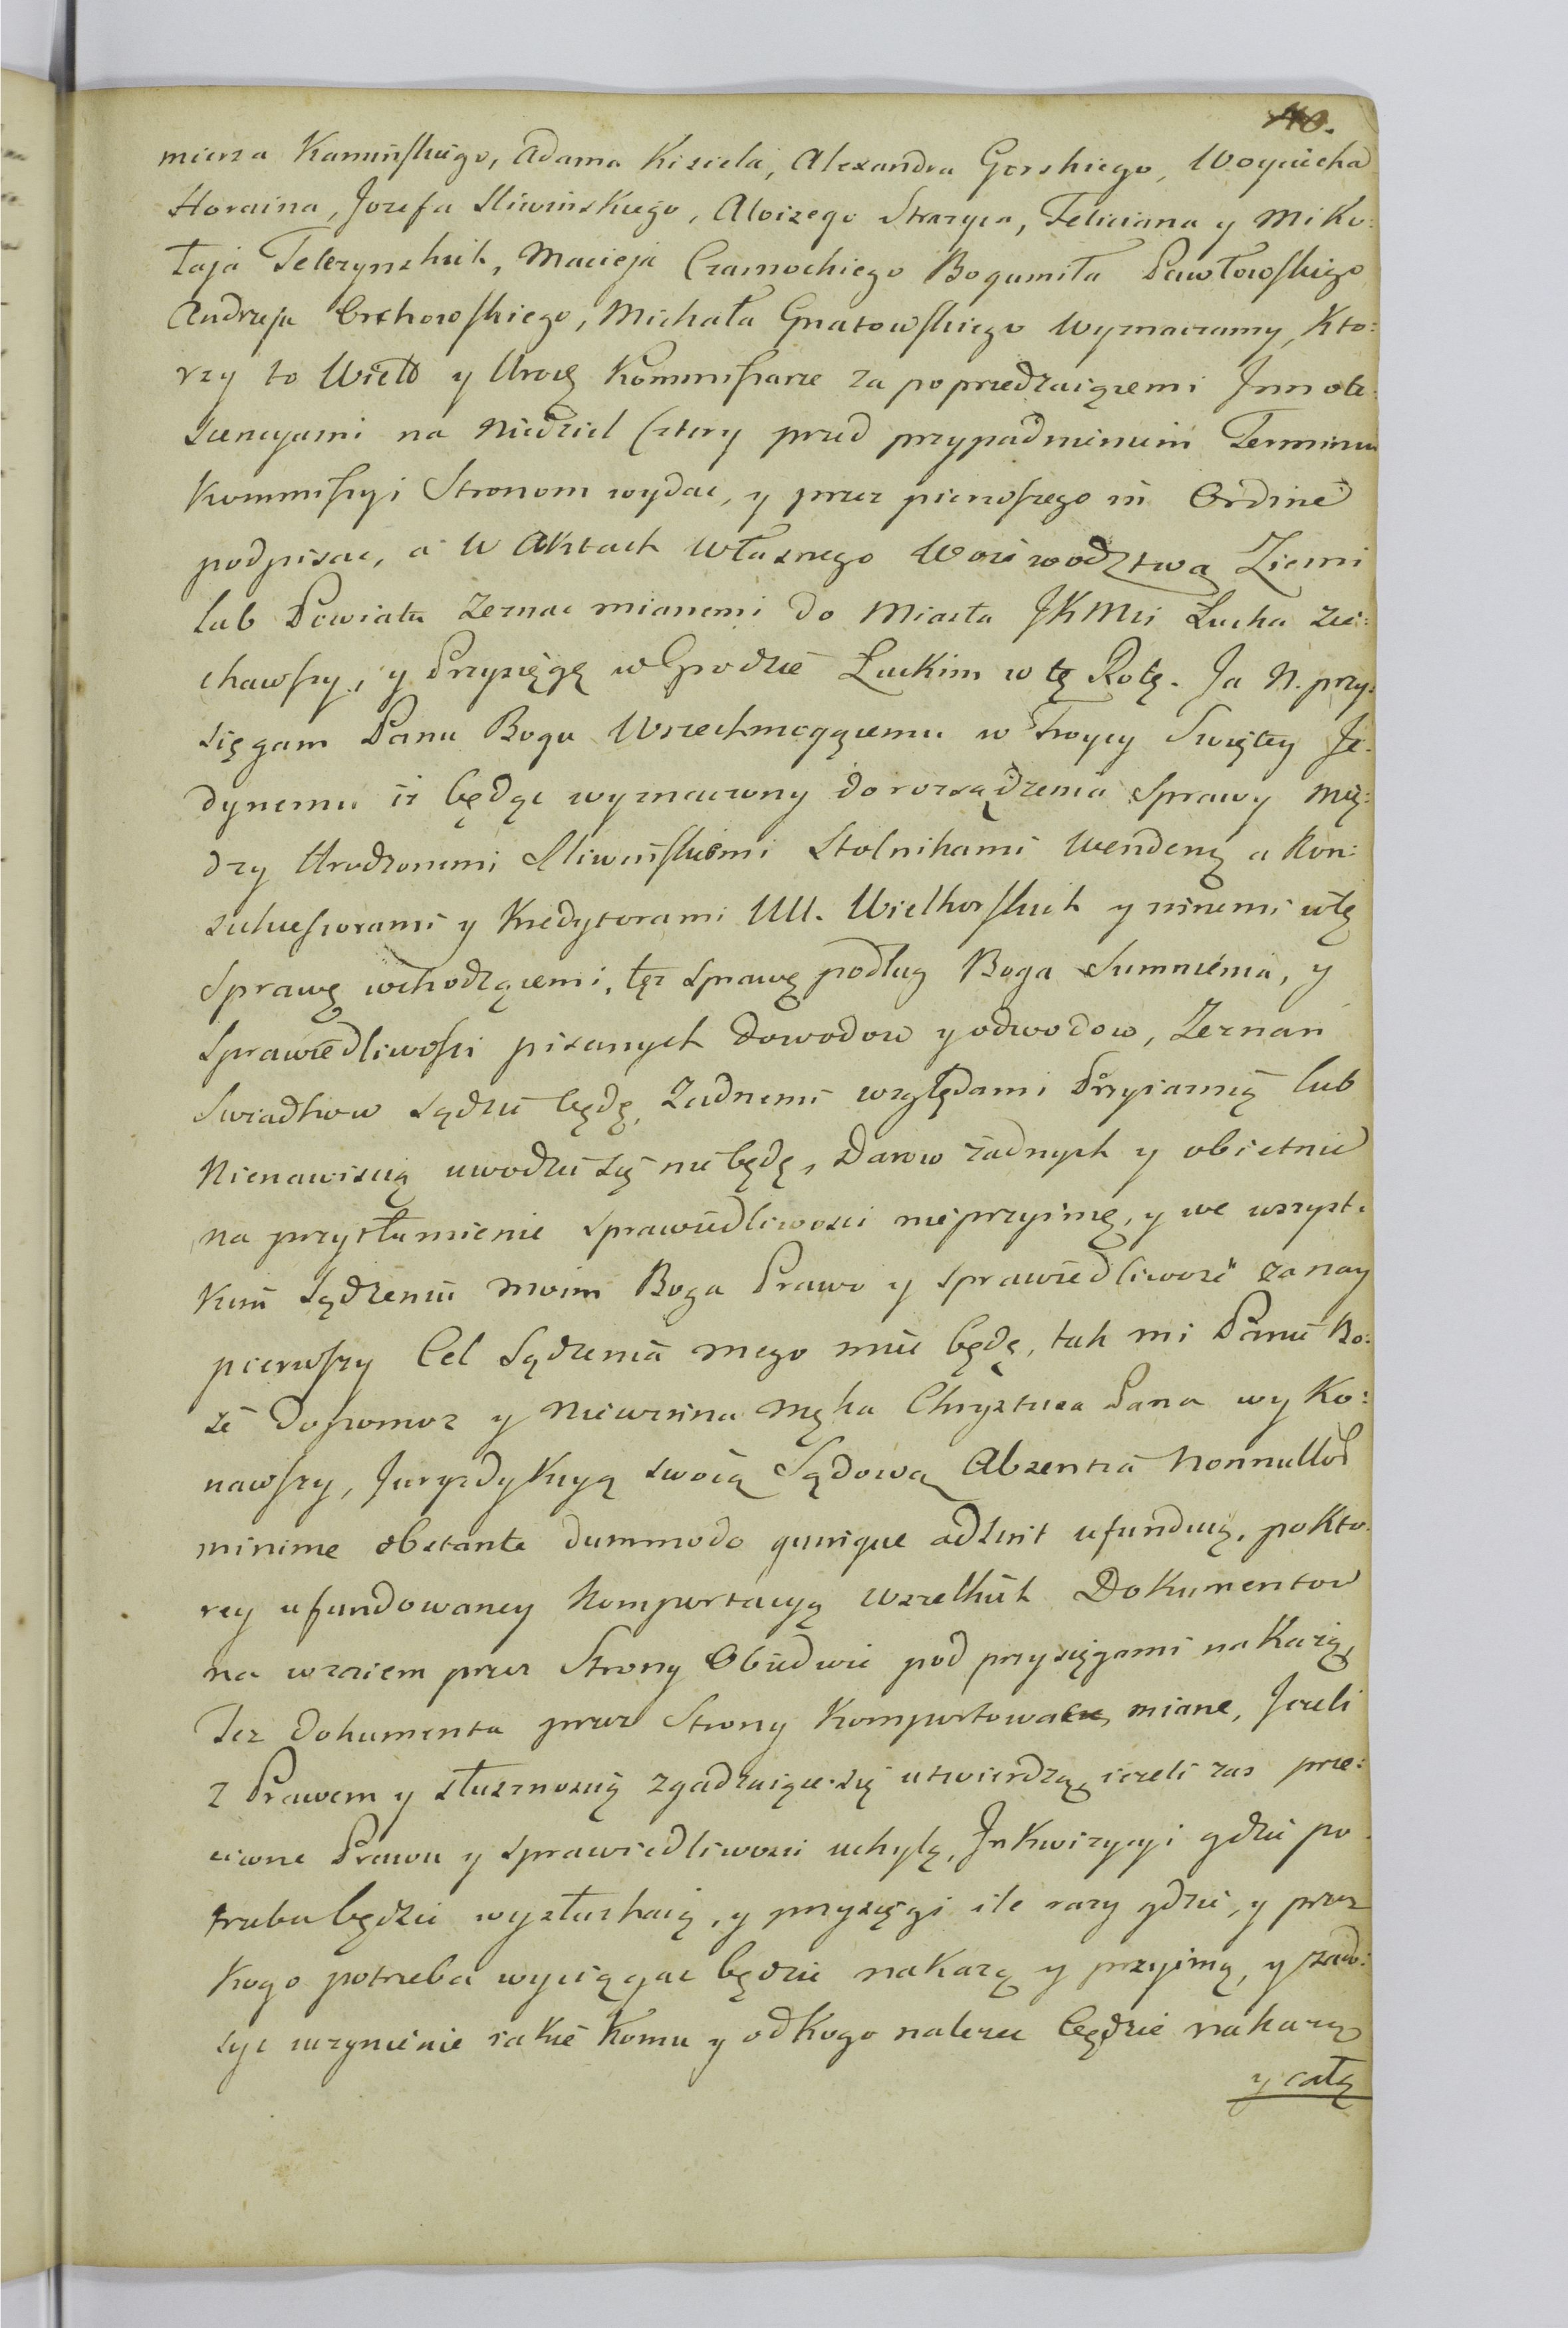 40.
mierza Kamińskiego, Adama Kisiela, Alexandra Gorskiego, Woyciecha
Horaina, Jozefa Sliwinskiego, Aloizego Strazyca, Feliciana y Miko:
łaja Telezynskich, Macieja Czarnockiego Bogumiła Pawłowskiego
Andrzeja Orchowskiego, Michała Gnatowskiego wyznaczamy, Kto:
rzy to Wiel. y Urodź. Kommissarze za poprzedzaiącemi Innote:
scencyami na Niedziel Cztery przed przypadnieniem Terminu
Kommissyi Stronom wydac, y przez pierwszego in Ordine
podpisac, a w Aktach własnego Woiewodztwa Ziemi
lub Powiatu zeznac mianemi do Miasta JKMci Łucka zie:
chawszy, y Przysięgę w Grodzie Łuckim w tę Rotę. Ja N. przy:
sięgam Panu Bogu Wszechmogącemu w Troycy Swiętey Je:
dynemu iż będąc wyznaczony do rozsądzenia Sprawy mię:
dzy Urodzonemi Sliwińskiemi Stolnikami Wendenę a Kon:
sukcessorami y Kredytorami UU. Wielhorskich y innemi w tę
Sprawę wchodzącemi, tęż sprawę podług Boga Sumnienia, y
Sprawiedliwości pisanych dowodow y odwodow, Zeznań
Swiadkow sądzić będę, Zadnemi względami Przyiaznią lub
Nienawiscią uwodzić się nie będę, Darow żadnych y obietnic
na przytłumienie sprawiedliwości nieprzyimę, y we wszyst:
kim sądzeniu moim Boga Prawo y sprawiedliwość za nay
pierwszy Cel sądzenia mego mieć będę, tak mi Panie Bo:
że dopomoz y niewinna męka Chrystusa Pana wyko:
nawszy, Juryzdykcyą swoią Sądową Absentia Nonnullor
minime obstante dummodo quinque adsint ufunduią, po kto:
rey ufundowaney Komportacyą wszelkich Dokumentow
na wzaiem przez Strony Obiedwie pod przysięgami nakażą,
Też dokumenta przez Strony Komportowane miane, Jeżeli
z Prawem y słusznoscią zgadzaiące się utwierdzą, ieżeli zas prze:
ciwne Prawu y sprawiedliwosci uchylą, Inkwizycyi gdzie po
trzeba będzie wysłuchaią, y przysięgi ile razy gdzie, y przez
Kogo potrzeba wyciągac będzie nakażą y przyimą, y zado:
syc uczynienie iakie Komu y od Kogo należec będzie nakażą
y całą